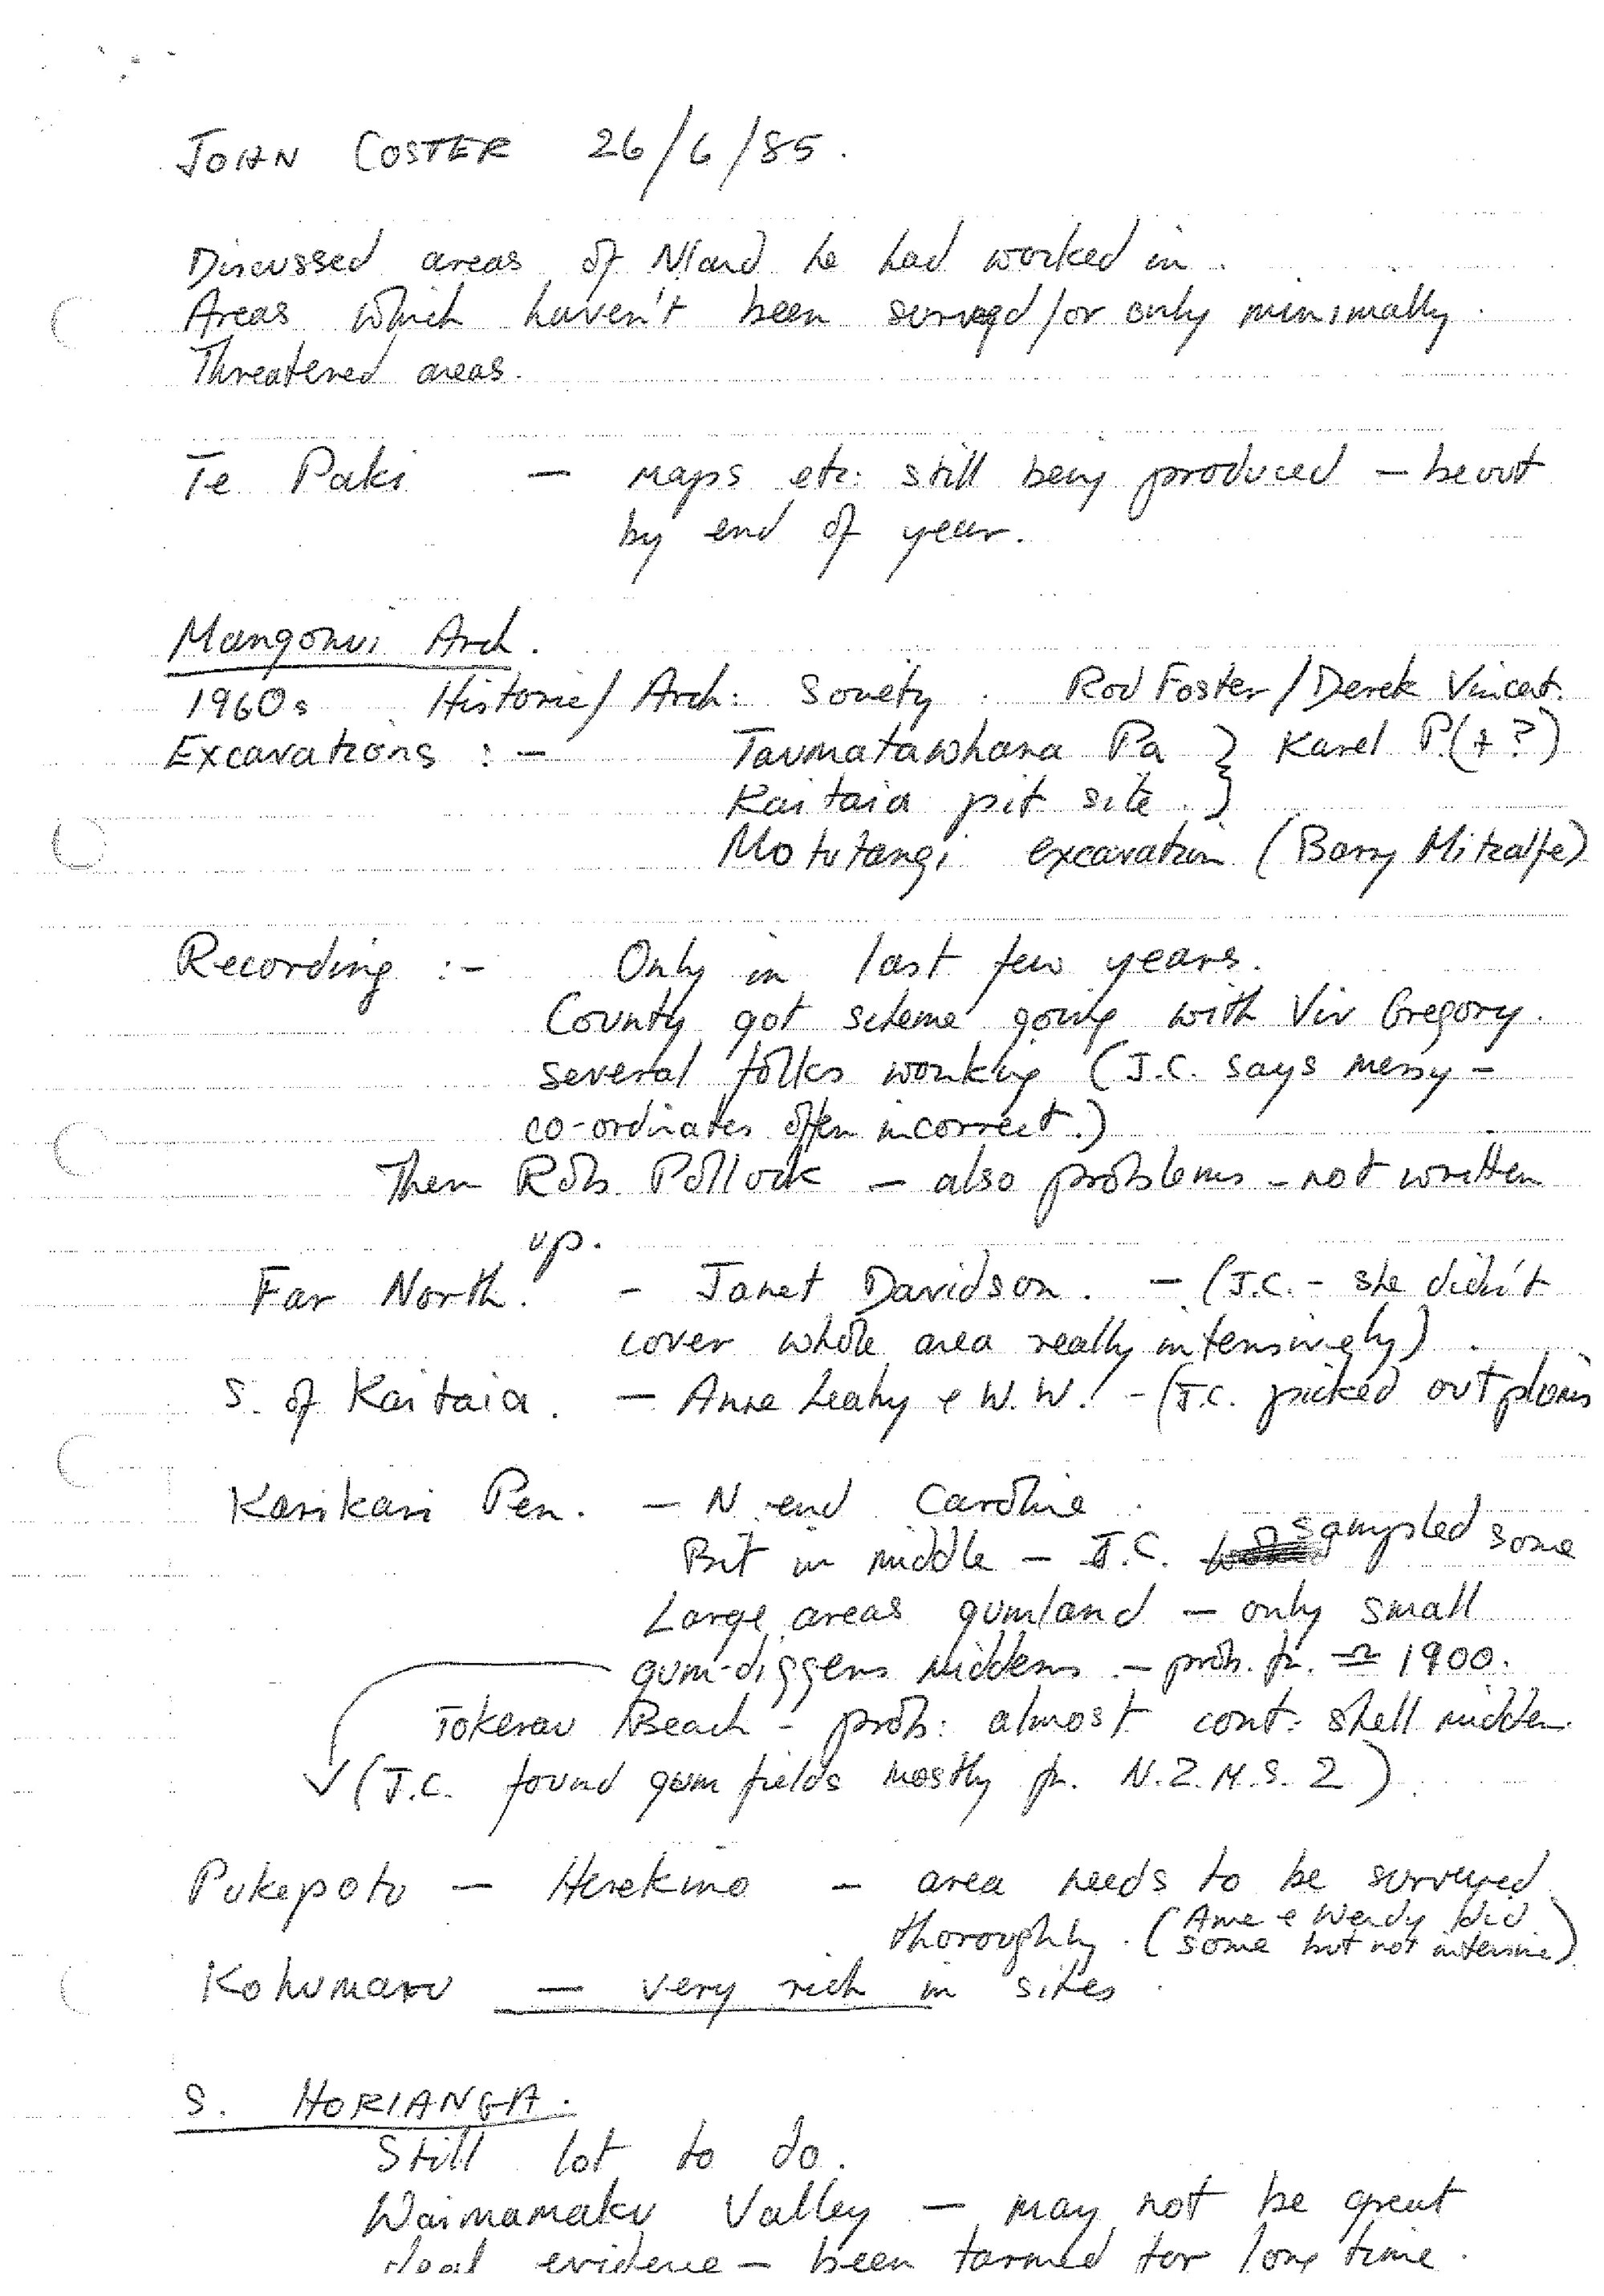 JOHN COSTER 26/6/85.
Discussed areas of N'land he had worked in.
Areas which haven't been surveyed/or only minimally.
Threatened areas.
Te Paki — maps etc. still being produced — be out
by end of year.
Mangonui Arch.
1960s Historic/Arch: Society. Rod Foster/Derek Vincent.
Excavations :— Taumatawhana Pa } Karel P.(+?)
Kaitaia pit site. }
Motutangi excavation (Barry Mitcalfe)
Recording :- Only in last few years.
County got scheme going with Viv Gregory.
several folks working (J.C. says messy -
co-ordinates often incorrect.)
Then Rob Pollock — also problems - not written
up.
Far North. - Janet Davidson. — (J.C. - she didn't
cover whole area really intensively).
S. of Kaitaia. — Anne Leahy & W.W. - (J.C. picked out
Karikari Pen. — N. end Caroline.
Bit in middle — J.C. sampled some
Large areas gumland — only small
gum-diggers middens — prob. fr. ≃ 1900.
Tokerau Beach - prob: almost cont: shell midden.
(J.C. found gum fields mostly fr. N.Z.M.S. 2).
Pukepoto — Herekino — area needs to be surveyed
thoroughly. (Anne & Wendy did
some but not intensive)
Kohumaru — very rich in sites.
S. HOKIANGA.
Still lot to do.
Waimamaku Valley — may not be great
deal evidence — been farmed for long time.